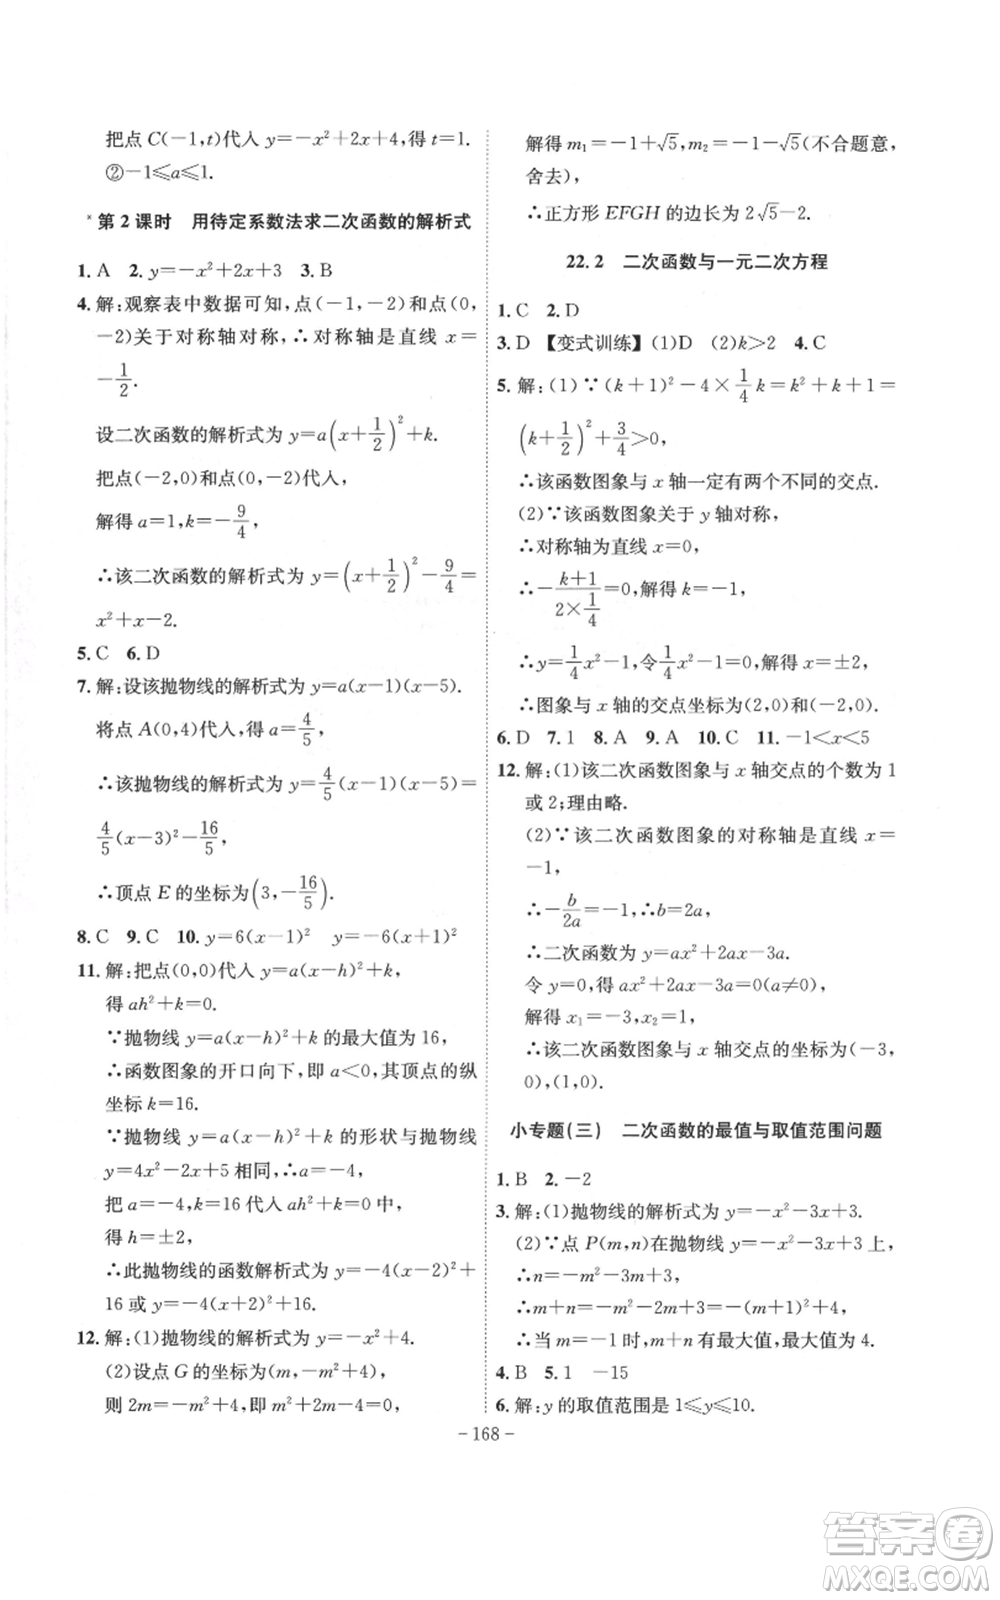 把点 C(-1,t)代入 y=-x²+2x+4,得 t=1.
②-1⩽a⩽1.
*第 2 课时 用待定系数法求二次函数的解析式
1. A 2. y=-x²+2x+3 3. B
4. 解:观察表中数据可知,点(-1,-2)和点(0,
-2)关于对称轴对称,∴对称轴是直线 x=
-1/2.
设二次函数的解析式为 y=a(x+1/2)²+k.
把点(-2,0)和点(0,-2)代入,
解得 a=1,k=-9/4,
∴该二次函数的解析式为 y=(x+1/2)²-9/4=
x²+x-2.
5. C 6. D
7. 解:设该抛物线的解析式为 y=a(x-1)(x-5).
将点 A(0,4)代入,得 a=4/5,
∴该抛物线的解析式为 y=4/5(x-1)(x-5)=
4/5(x-3)²-16/5,
∴顶点 E 的坐标为(3,-16/5).
8. C 9. C 10. y=6(x-1)² y=-6(x+1)²
11. 解:把点(0,0)代入 y=a(x-h)²+k,
得 ah²+k=0.
∵抛物线 y=a(x-h)²+k 的最大值为 16,
∴函数图象的开口向下,即 a<0,其顶点的纵
坐标 k=16.
∵抛物线 y=a(x-h)²+k 的形状与抛物线
y=4x²-2x+5 相同,∴a=-4,
把 a=-4,k=16 代入 ah²+k=0 中,
得 h=±2,
∴此抛物线的函数解析式为 y=-4(x-2)²+
16 或 y=-4(x+2)²+16.
12. 解:(1)抛物线的解析式为 y=-x²+4.
(2)设点 G 的坐标为(m,-m²+4),
则 2m=-m²+4,即 m²+2m-4=0,
解得 m₁=-1+√5,m₂=-1-√5(不合题意,
舍去),
∴正方形 EFGH 的边长为 2√5-2.
22.2 二次函数与一元二次方程
1. C 2. D
3. D 【变式训练】(1)D (2)k>2 4. C
5. 解:(1)∵(k+1)²-4×1/4k=k²+k+1=
(k+1/2)²+3/4>0,
∴该函数图象与 x 轴一定有两个不同的交点.
(2)∵该函数图象关于 y 轴对称,
∴对称轴为直线 x=0,
∴-(k+1)/(2×1/4)=0,解得 k=-1,
∴y=1/4x²-1,令1/4x²-1=0,解得 x=±2,
∴图象与 x 轴的交点坐标为(2,0)和(-2,0).
6. D 7. 1 8. A 9. A 10. C 11. -1<x<5
12. 解:(1)该二次函数图象与 x 轴交点的个数为 1
或 2;理由略.
(2)∵该二次函数图象的对称轴是直线 x=
-1,
∴-b/2a=-1,∴b=2a,
∴二次函数为 y=ax²+2ax-3a.
令 y=0,得 ax²+2ax-3a=0(a≠0),
解得 x₁=-3,x₂=1,
∴该二次函数图象与 x 轴交点的坐标为(-3,
0),(1,0).
小专题(三) 二次函数的最值与取值范围问题
1. B 2. -2
3. 解:(1)抛物线的解析式为 y=-x²-3x+3.
(2)∵点 P(m,n)在抛物线 y=-x²-3x+3 上,
∴n=-m²-3m+3,
∴m+n=-m²-2m+3=-(m+1)²+4,
∴当 m=-1 时,m+n 有最大值,最大值为 4.
4. B 5. 1 -15
6. 解:y 的取值范围是 1⩽y⩽10.
- 168 -
答案卷
MXQE.COM